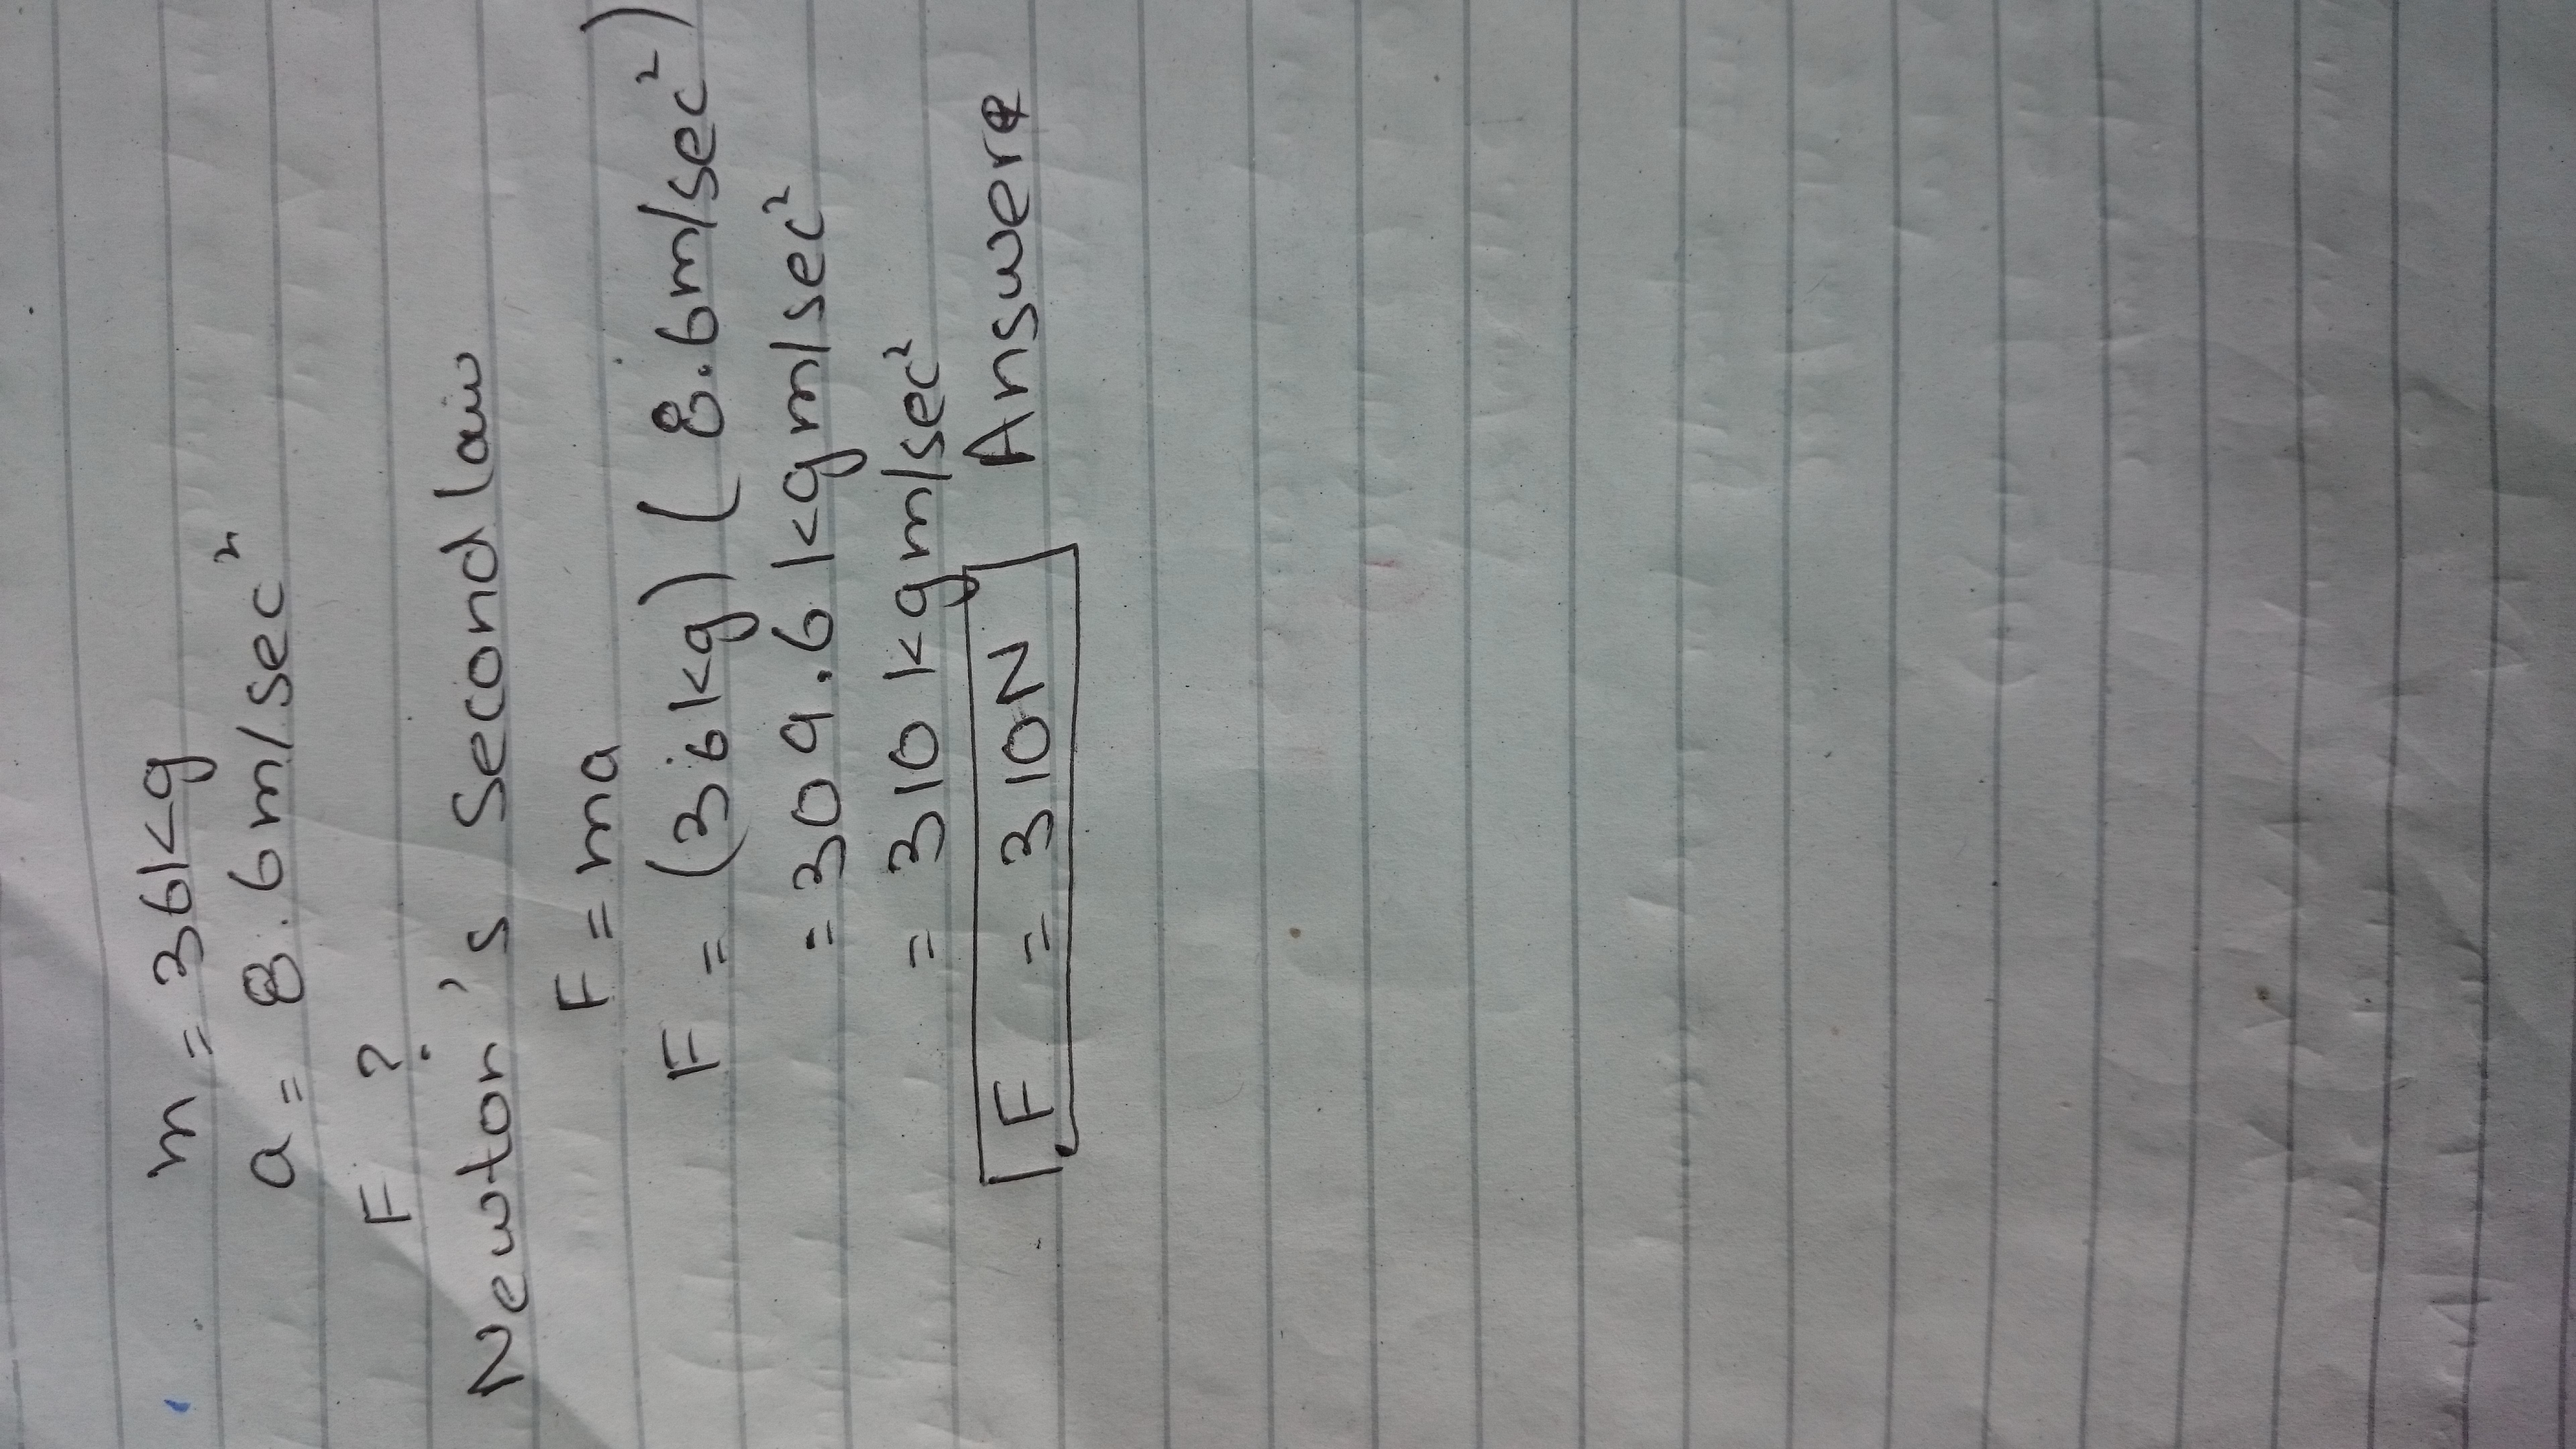 m = 36kg
a = 8.6m/sec²
F ?
Newton's Second law
F = ma
F = (36kg) (8.6m/sec²)
= 309.6 kgm/sec²
= 310 kgm/sec²
F = 310N Answere